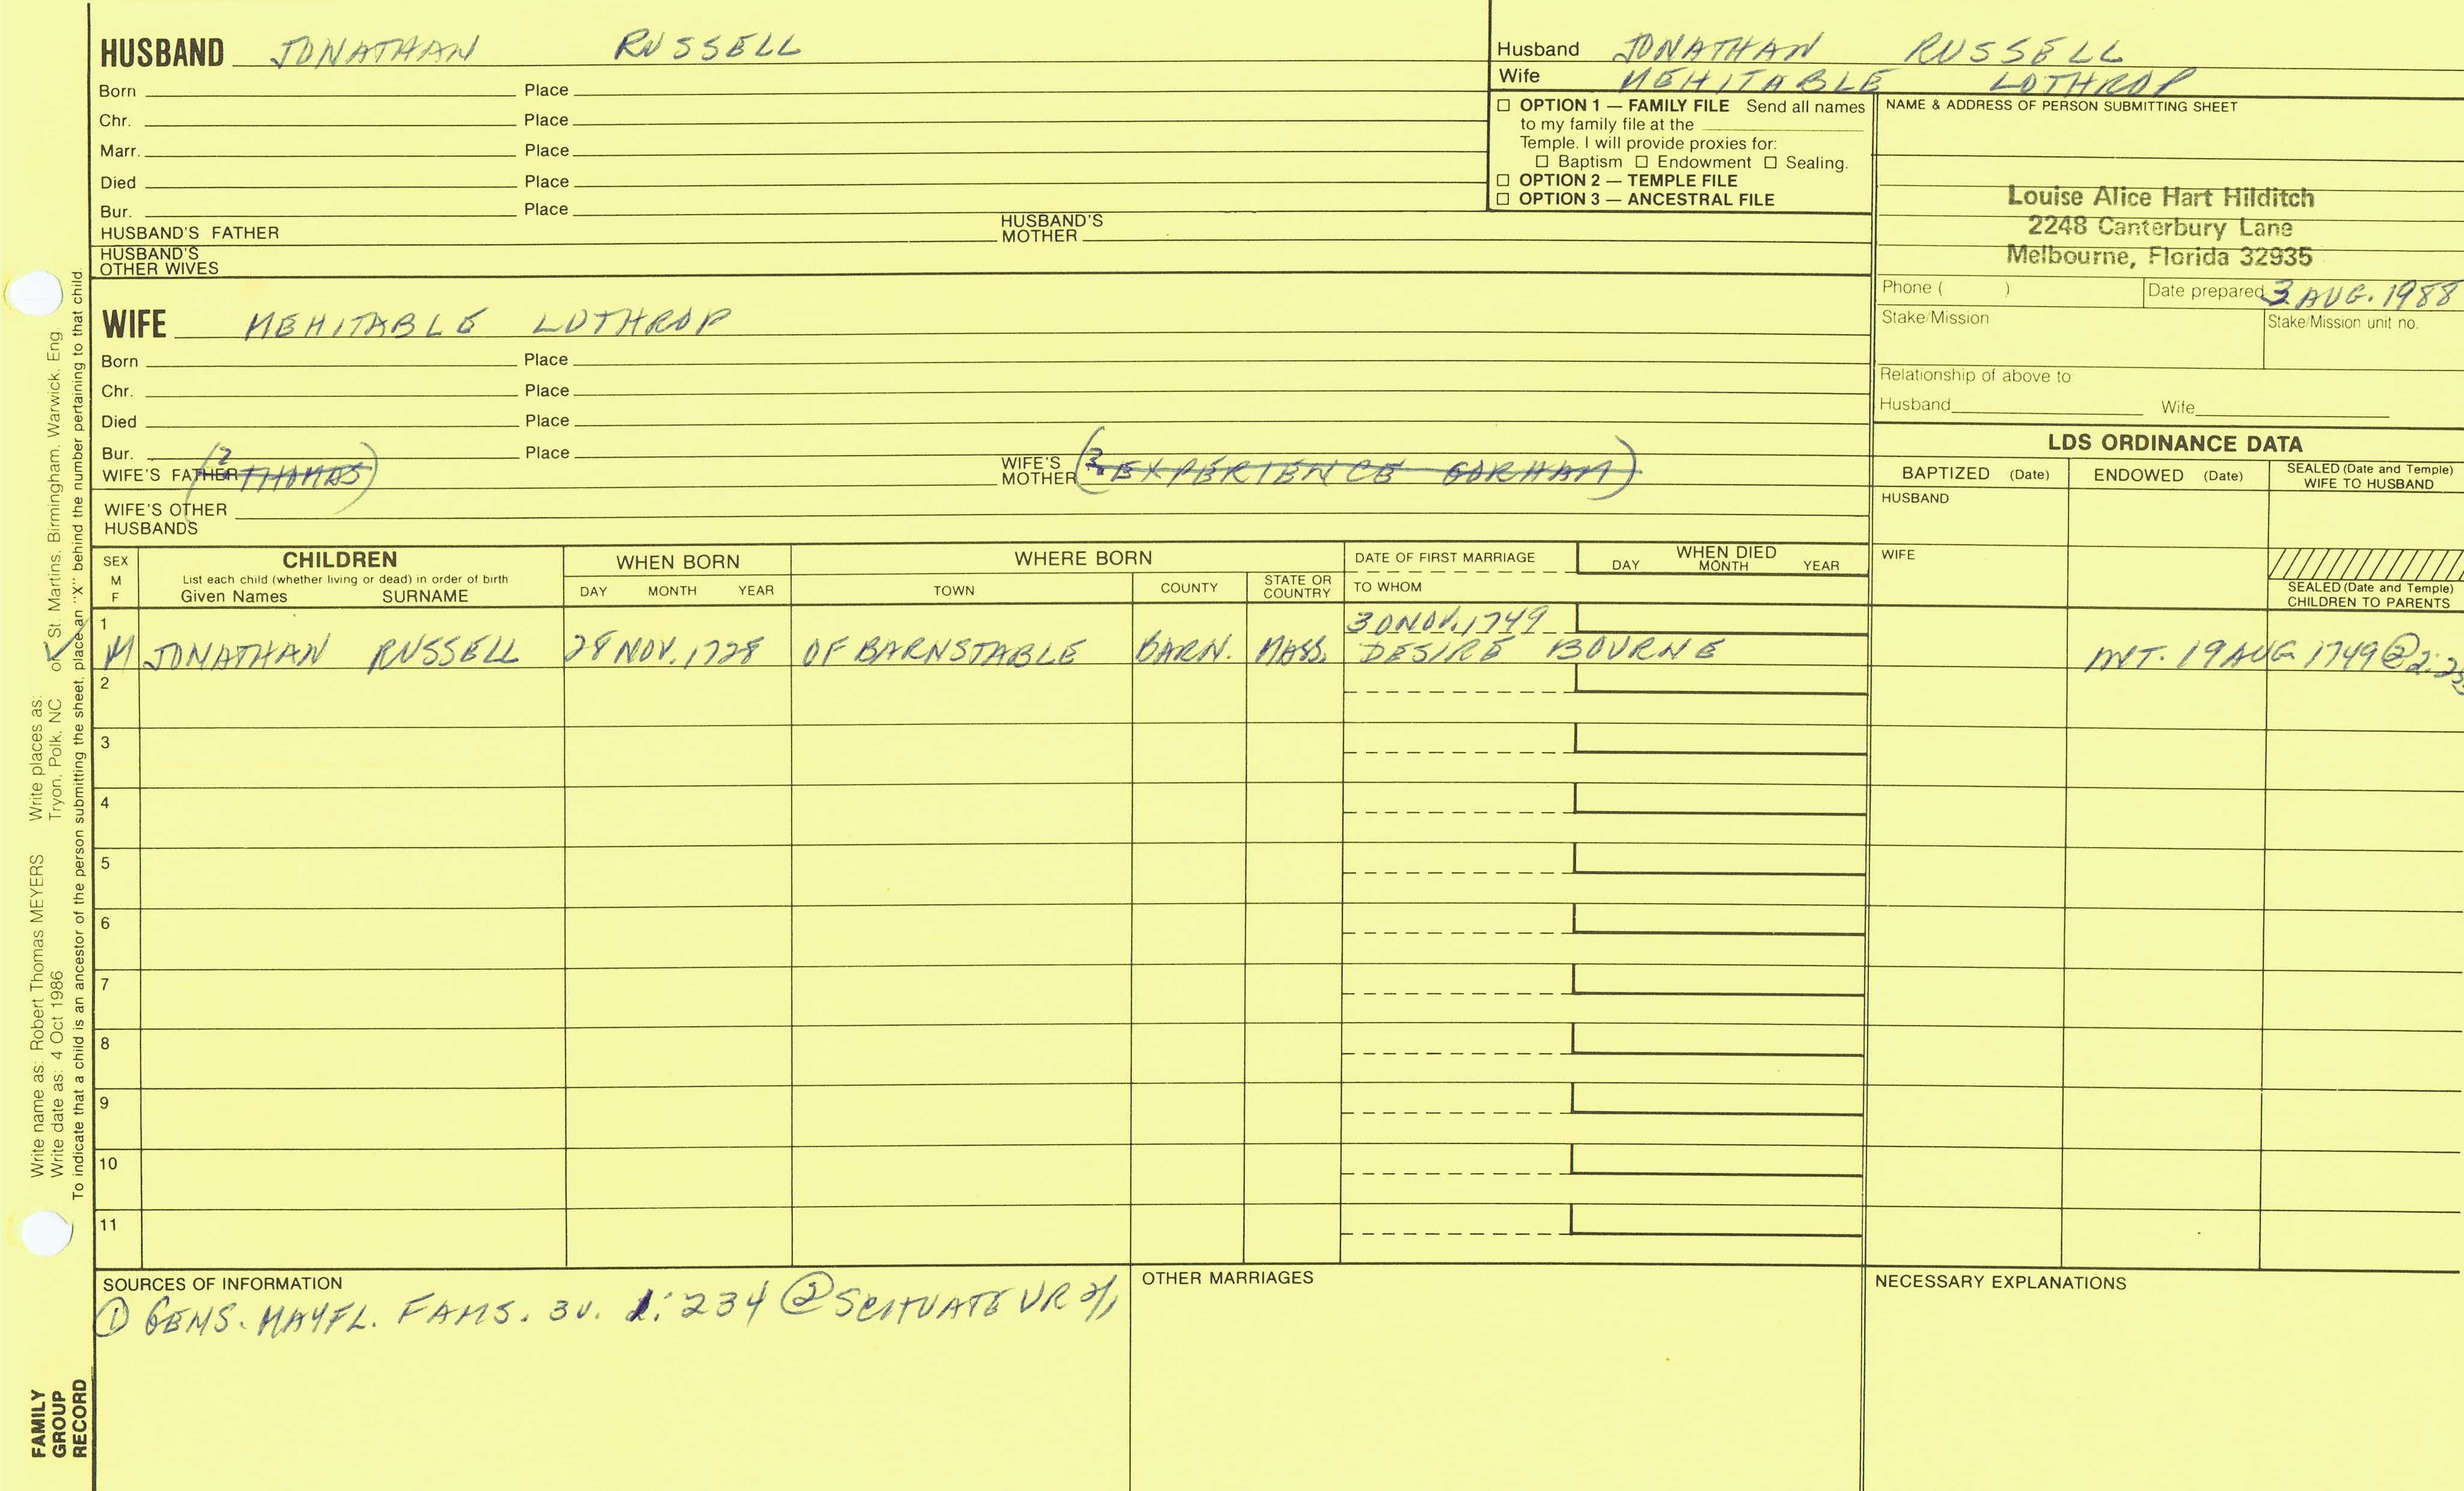 HUSBAND JONATHAN RUSSELL
Born Place
Chr. Place
Marr. Place
Died Place
Bur. Place
HUSBAND'S FATHER HUSBAND'S MOTHER
HUSBAND'S OTHER WIVES
Husband JONATHAN RUSSELL
Wife MEHITABLE LOTHROP
☐ OPTION 1 — FAMILY FILE Send all names
to my family file at the
Temple. I will provide proxies for:
☐ Baptism ☐ Endowment ☐ Sealing.
☐ OPTION 2 — TEMPLE FILE
☐ OPTION 3 — ANCESTRAL FILE
NAME & ADDRESS OF PERSON SUBMITTING SHEET
Louise Alice Hart Hilditch
2248 Canterbury Lane
Melbourne, Florida 32935
Phone ( ) Date prepared 3 AUG. 1988
Stake/Mission Stake/Mission unit no.
Relationship of above to:
Husband Wife
WIFE MEHITABLE LOTHROP
Born Place
Chr. Place
Died Place
Bur. Place
WIFE'S FATHER (? THOMAS) WIFE'S MOTHER (? EXPERIENCE GORHAM)
WIFE'S OTHER
HUSBANDS
LDS ORDINANCE DATA
BAPTIZED (Date) ENDOWED (Date) SEALED (Date and Temple) WIFE TO HUSBAND
HUSBAND
WIFE
SEALED (Date and Temple)
CHILDREN TO PARENTS
SEX M F
CHILDREN
List each child (whether living or dead) in order of birth
Given Names SURNAME
WHEN BORN
DAY MONTH YEAR
WHERE BORN
TOWN COUNTY STATE OR COUNTRY
DATE OF FIRST MARRIAGE
TO WHOM
WHEN DIED
DAY MONTH YEAR
1 30 NOV. 1749
✓ M JONATHAN RUSSELL 28 NOV. 1728 OF BARNSTABLE BARN. MASS. DESIRE BOURNE INT. 19 AUG 1749 ②2:
2
3
4
5
6
7
8
9
10
11
SOURCES OF INFORMATION
① GENS. MAYFL. FAMS. 3v. 1: 234 ② SCITUATE VR 2/
OTHER MARRIAGES
NECESSARY EXPLANATIONS
Write name as: Robert Thomas MEYERS Write places as:
Write date as: 4 Oct 1986 Tryon, Polk, NC or St. Martins, Birmingham, Warwick, Eng
To indicate that a child is an ancestor of the person submitting the sheet, place an "X" behind the number pertaining to that child.
FAMILY
GROUP
RECORD